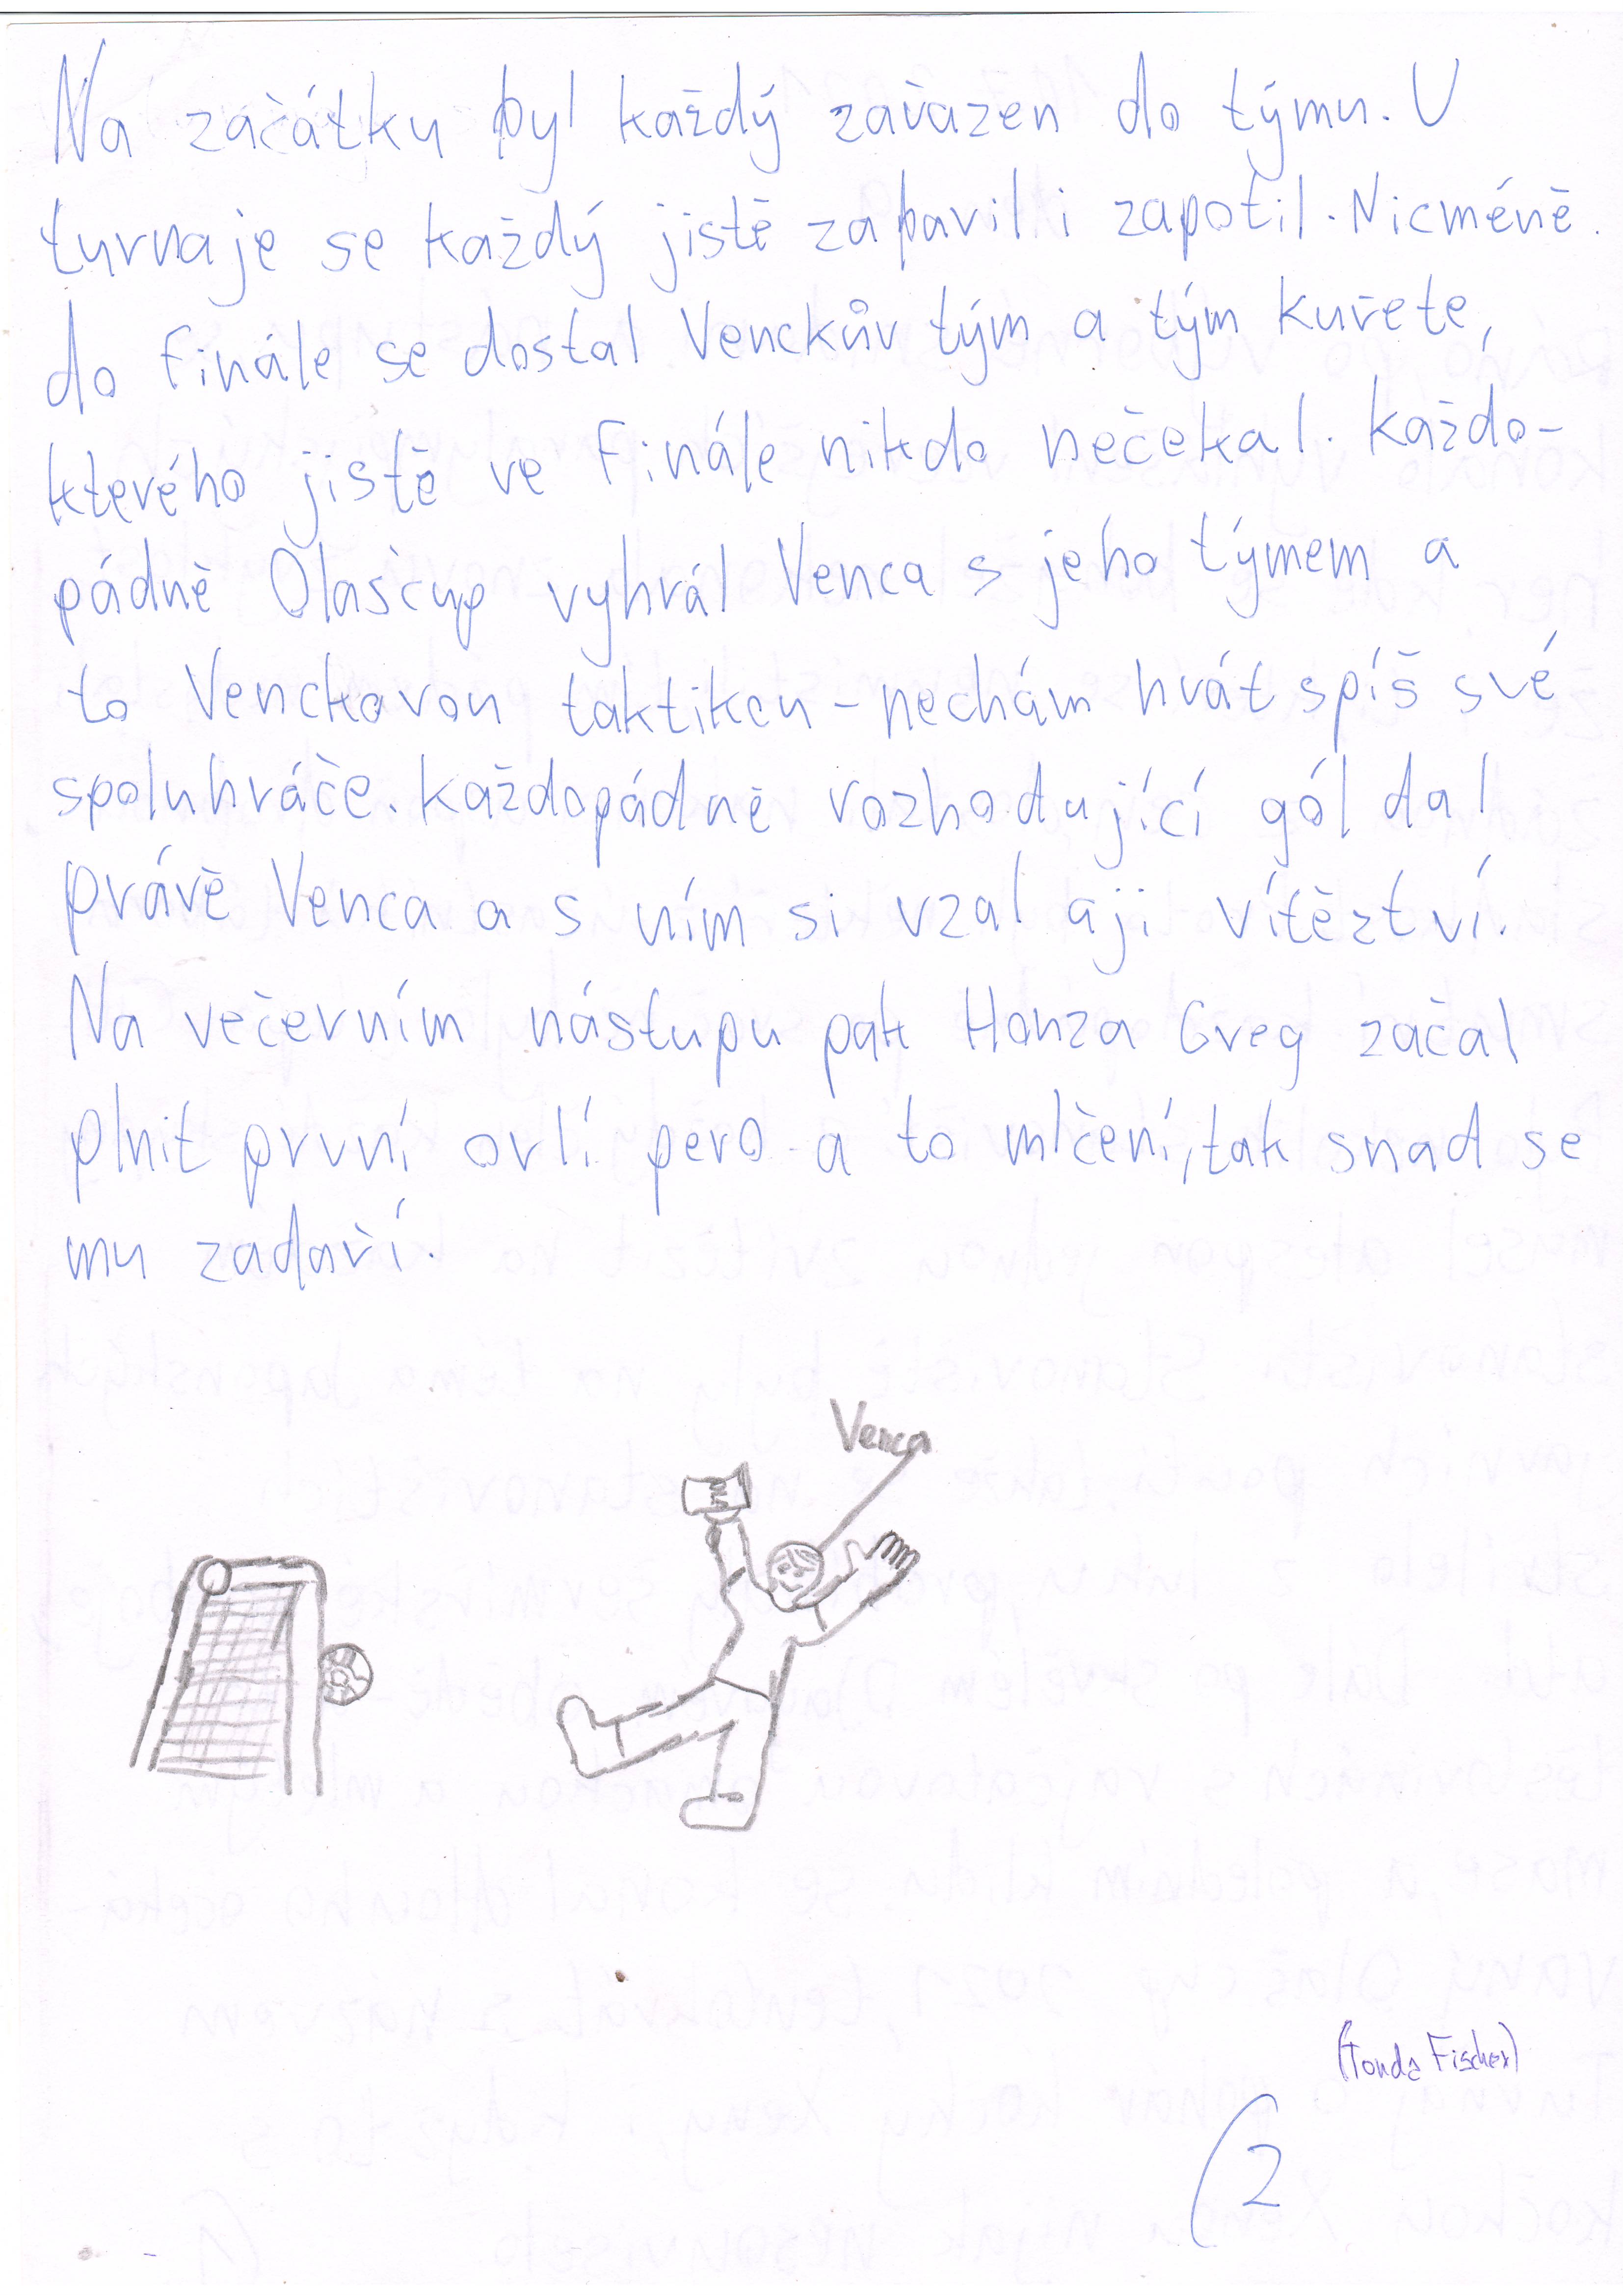 Na začátku byl každý zařazen do týmu. U
turnaje se každý jistě zabavil i zapotil. Nicméně
do finále se dostal Venckův tým a tým kuřete,
kterého jistě ve finále nikdo nečekal. Každo-
pádně Olašcup vyhrál Venca s jeho týmem a
to Venckovou taktikou - nechám hrát spíš své
spoluhráče. Každopádně rozhodující gól dal
právě Venca a s ním si vzal aji vítěztví.
Na večerním nástupu pak Honza Greg začal
plnit první orlí pero a to mlčení, tak snad se
mu zadaří.
Venca
(Tonda Fischer)
2